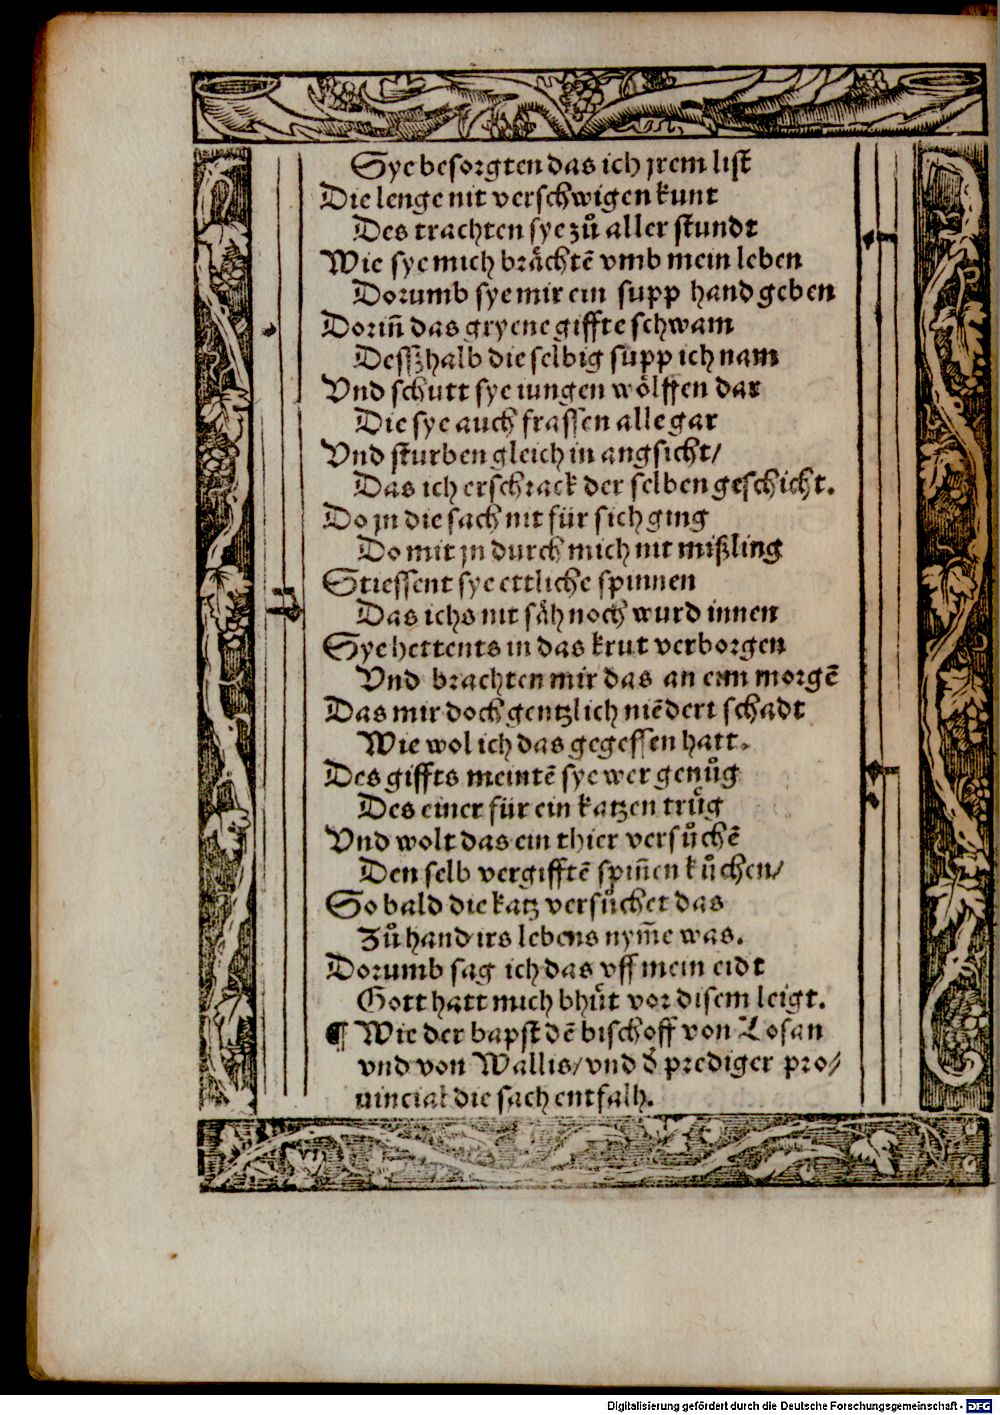 Sye besorgten das ich jrem list
Die lenge nit verschwigen kunt
Des trachten sye zů aller stundt
Wie sye mich brächtē vmb mein leben
Dorumb sye mir ein supp hand geben
Dorin̄ das gryene giffte schwam
Dessßhalb die selbig supp ich nam
Vnd schutt sye iungen wölffen dar
Die sye auch frassen alle gar
Vnd sturben gleich in angsicht/
Das ich erschrack der selben geschicht.
Do jn die sach nit für sich ging
Do mit jn durch mich nit mißling
Stiessent sye ettliche spinnen
Das ichs nit säh noch wurd innen
Sye hettents in das krut verborgen
Vnd brachten mir das an eim morgē
Das mir doch gentzlich niēdert schadt
Wie wol ich das gegessen hatt.
Des giffts meintē sye wer genůg
Des einer für ein katzen trůg
Vnd wolt das ein thier versůchē
Den selb vergifftē spin̄en kůchen/
So bald die katz versůchet das
Zů hand irs lebens nym̄e was.
Dorumb sag ich das vff mein eidt
Gott hatt mich bhüt vor disem leigt.
¶ Wie der bapst dē bischoff von Losan
vnd von Wallis/ vnd d̄ prediger pro/
uincial die sach entfalh.
Digitalisierung gefördert durch die Deutsche Forschungsgemeinschaft - DFG